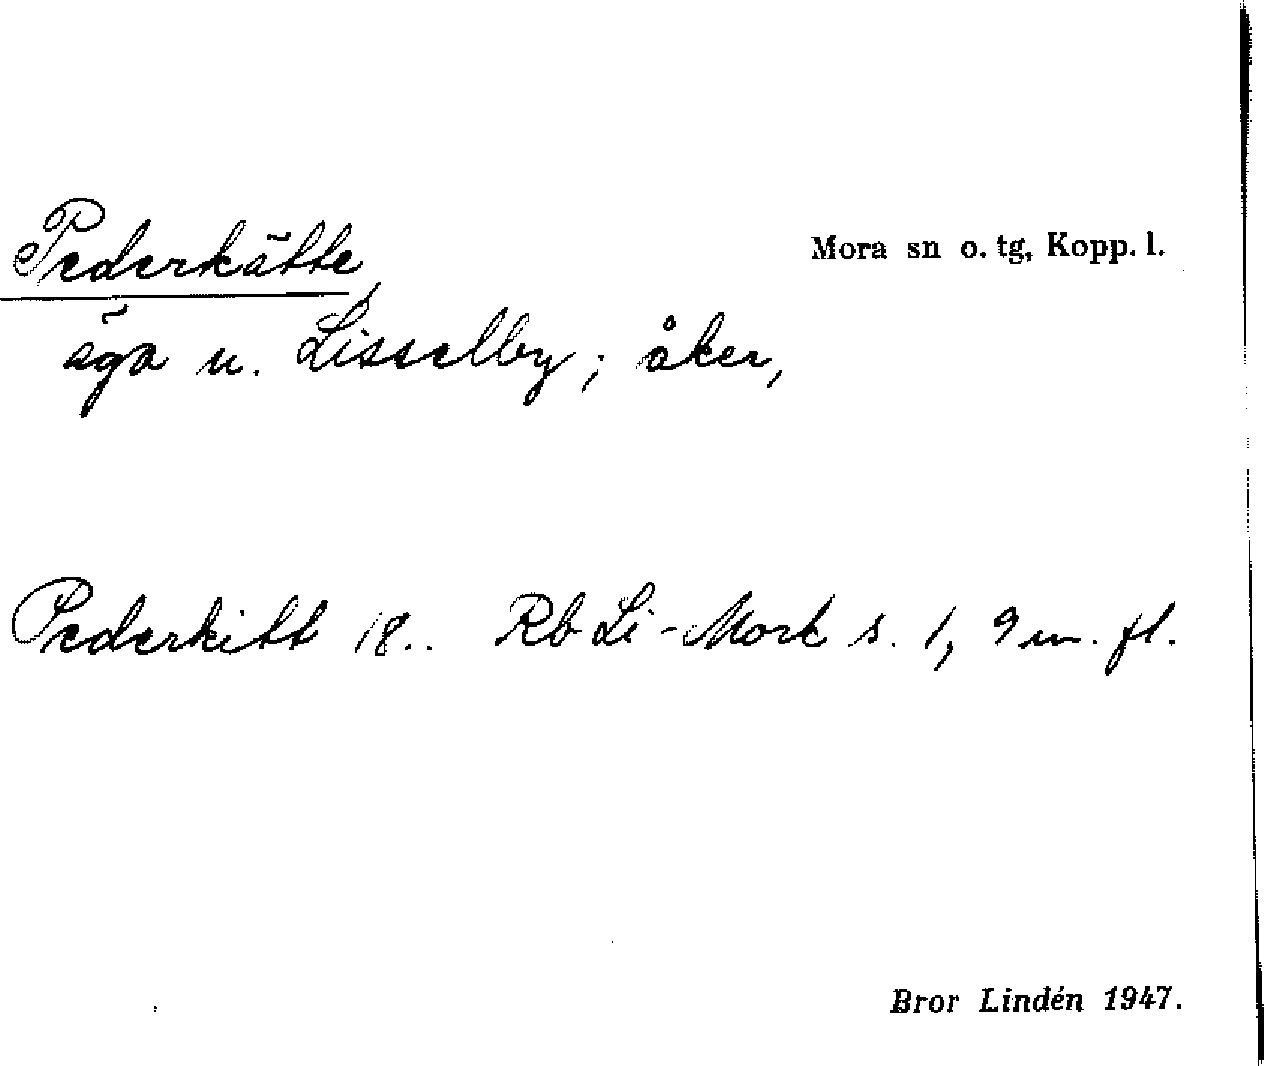 Pederkätte,
Mora sn o. tg, Kopp. l.
äga u. Lisselby; åker,
Pederkitt 18.. Rb Li-Mork s. 1, 9 m. fl.
Bror Lindén 1947.